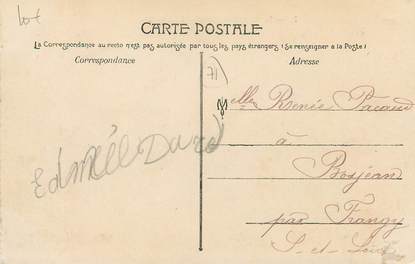 lot
CARTE POSTALE
La Correspondance au recto n'est pas autorisée par tous les pays étrangers (Se renseigner à la Poste)
Correspondance
Adresse
71
Melle Renée Pacaud
à
Bosjean
par Frangy
S-et-Loire